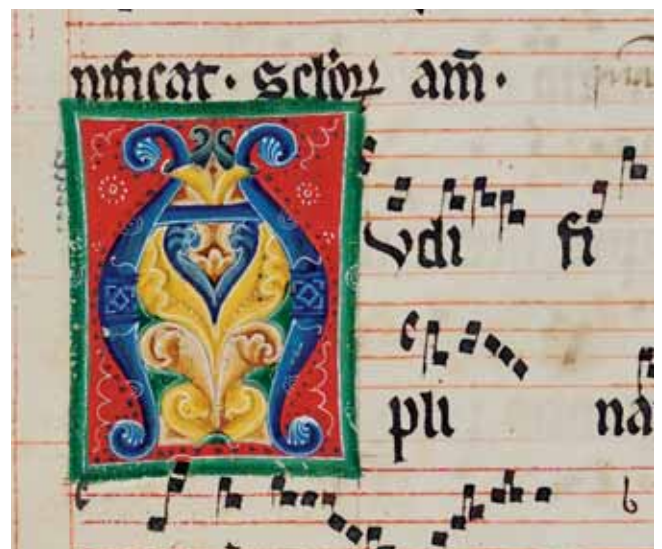 nificat · sctõꝝ am̃ ·
Avdi fi
pli na